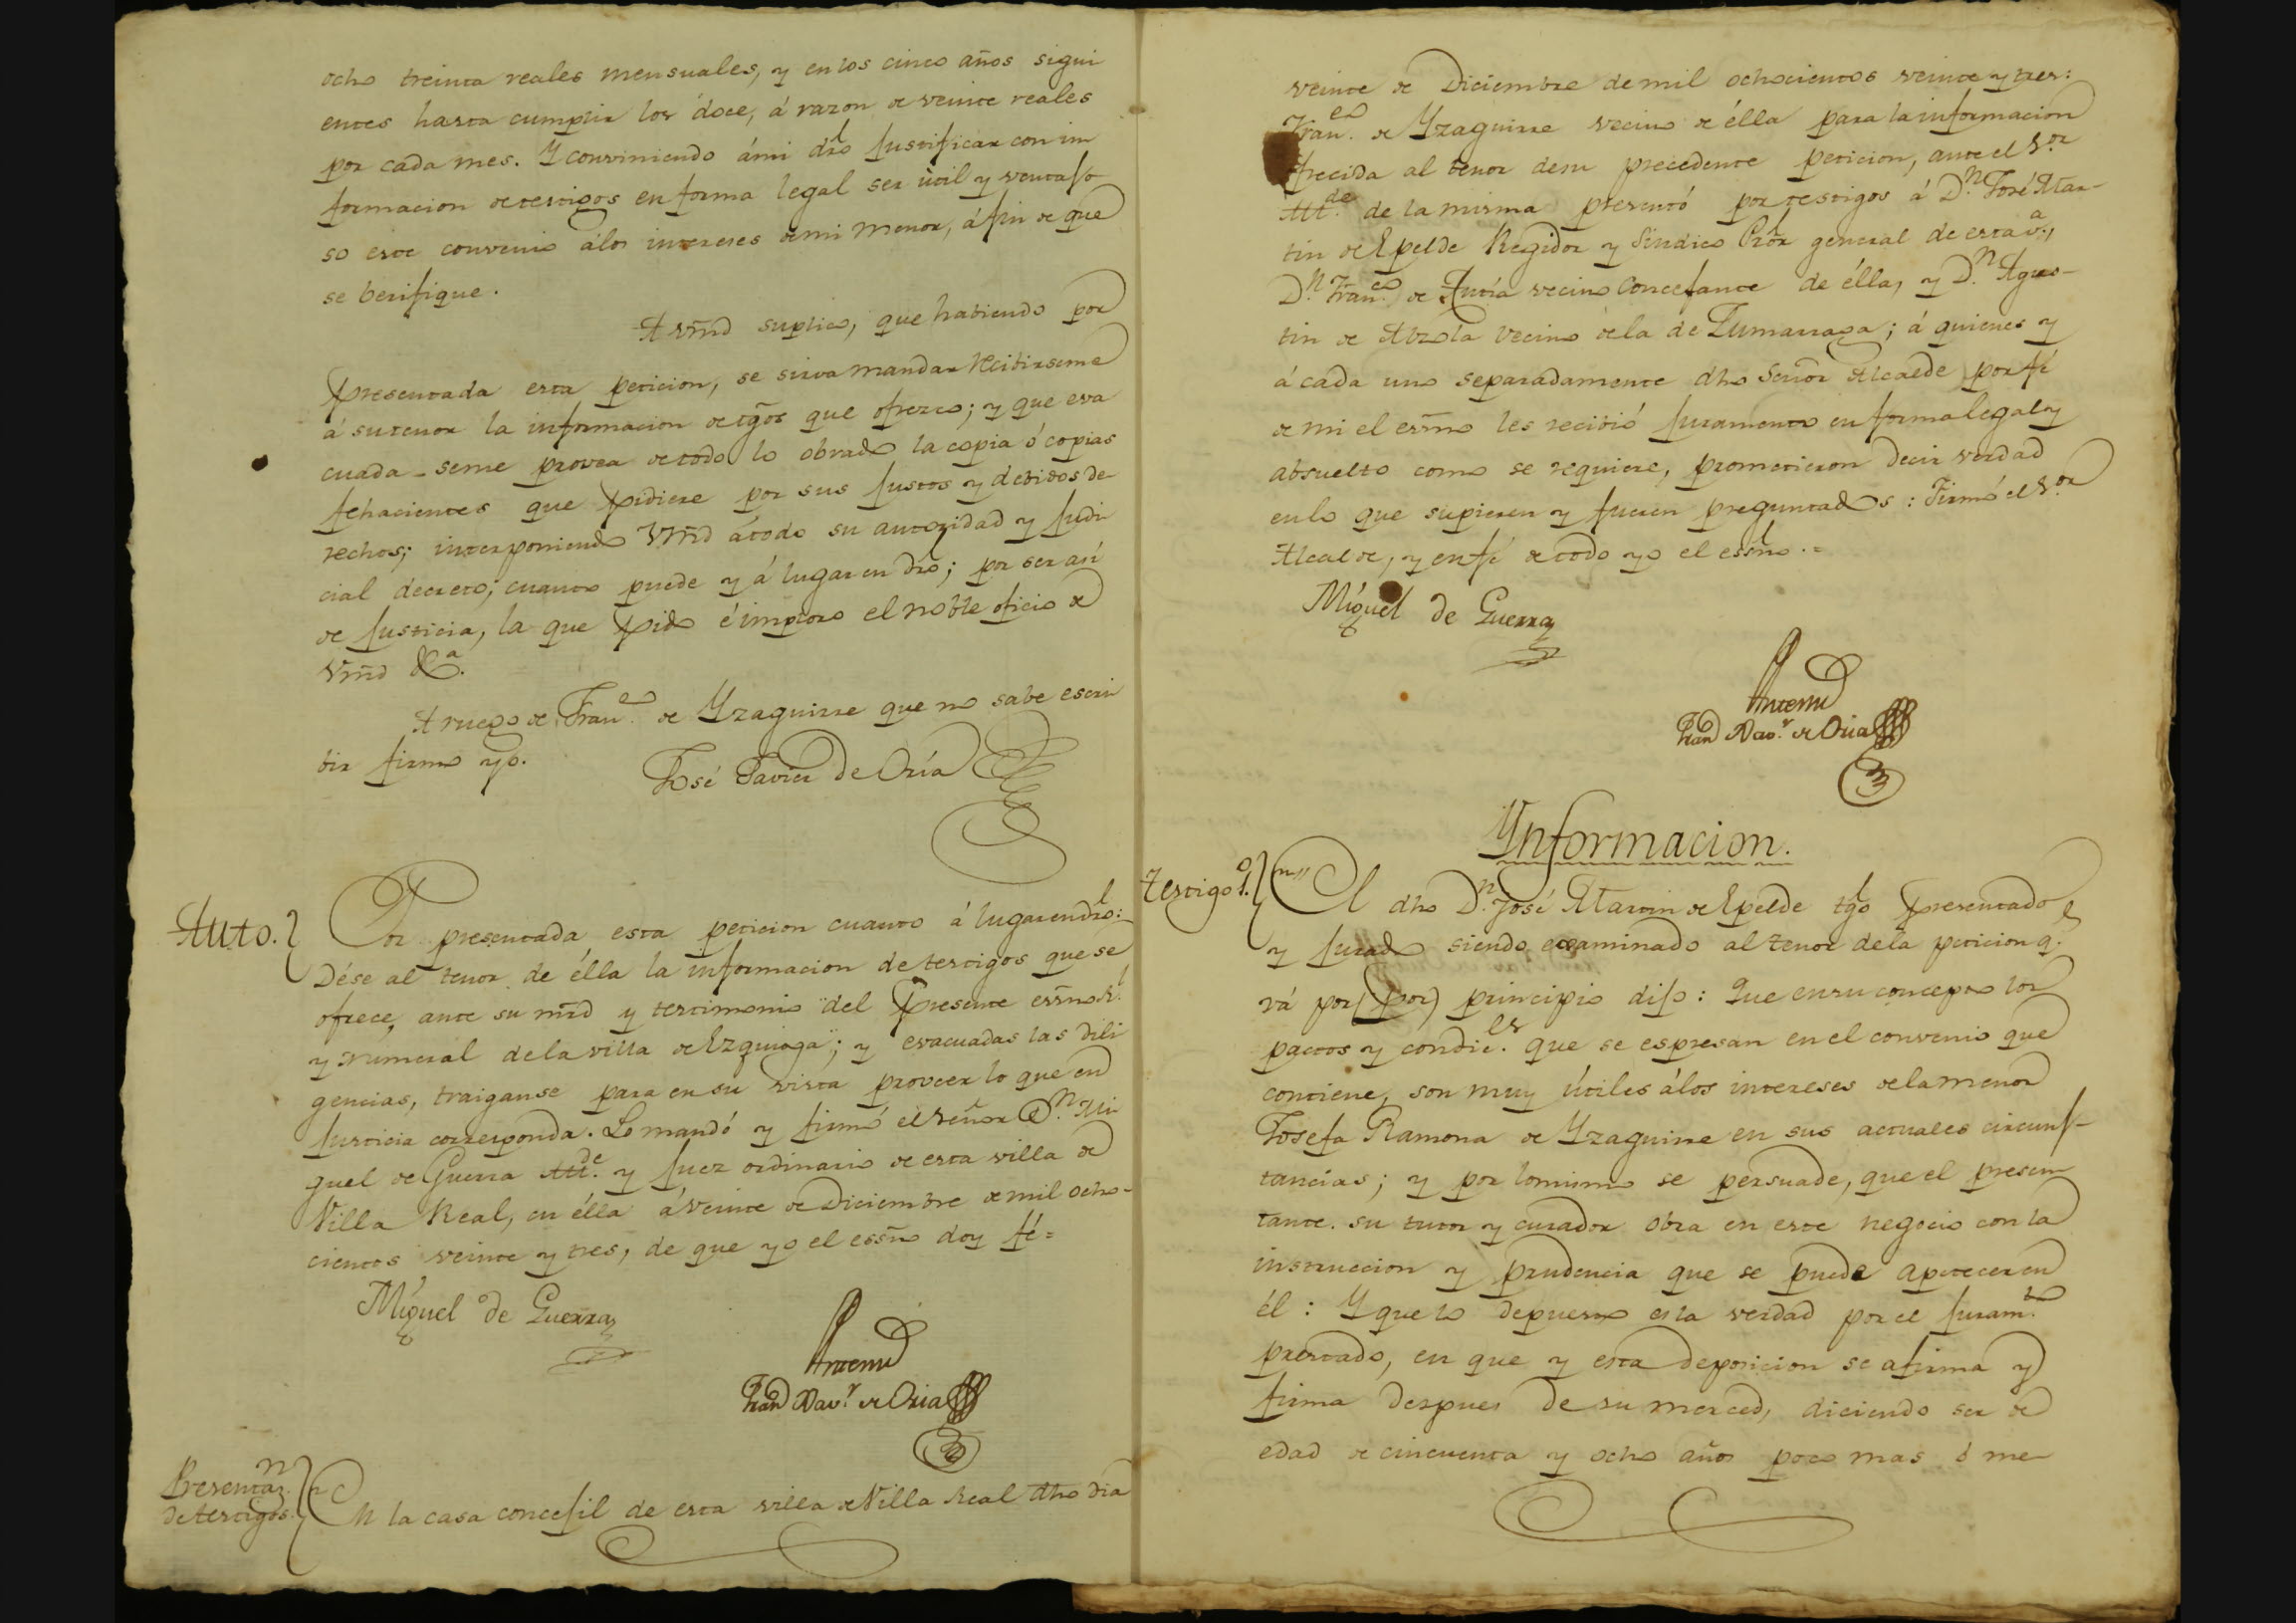 ocho treinta reales mensuales, y en los cinco años sigui
entes hasta cumplir los doce, á razon de veinte reales
por cada mes. Y conviniendo ámi dro justificar con in
formacion de testigos en forma legal ser útil y ventajo
so este convenio álos intereses de mi menor, áfin de que
se berifique.
A vmd suplico, que habiendo por
presentada esta peticion, se sirva mandar recibirseme
á su tenor la informacion de tgos que ofrezco; y que eva
cuada seme provea de todo lo obrado la copia ó copias
fehacientes que pidiere por sus justos y debidos de
rechos; interponiendo Vmd átodo su autoridad y judi
cial decreto; cuanto puede y á lugar en dro; por ser así
de justicia, la que pido é imploro el noble oficio de
Vmd &a.
A ruego de Franco. de Yzaguirre que no sabe escri
bir firmo yo.
José Javier de Oria
Auto. Por presentada esta peticion cuanto á lugar en dro:
Dése al tenor de élla la informacion de testigos que se
ofrece, ante su mrd y testimonio del presente essno Rl.
y numeral dela villa de Ezquioga; y evacuadas las dili
gencias, traiganse para en su vista proveer lo que en
justicia corresponda. Lo mandó y firmó el señor Dn. Mi
guel de Guerra Alde. y juez ordinario de esta villa de
Villa Real, en élla á veinte de Diciembre de mil ocho-
cientos veinte y tres, de que yo el essno doy fé=
Miguel de Guerra
Antemi
Fran Xavr. de Oria
Presentazn.
de testigos. En la casa concejil de esta villa de Villa Real dho dia
veinte de Diciembre de mil ochocientos veinte y tres:
Franco. de Yzaguirre vecino de élla para la informacion
frecida al tenor desu precedente peticion, ante el Sor
Alde. de la misma presentó por testigos á Dn. José Mar-
tin de Epelde Regidor y Sindico Pror general de esta va.,
Dn. Franco. de vecino Concejante de élla, y Dn. Agus-
tin de Abzola vecino dela de Zumarraga; á quienes y
á cada uno separadamente dho Señor Alcalde por fé
de mi el essno les recibió juramento en forma legal y
absuelto como se requiere, prometieron decir verdad
en lo que supieren y fueren preguntados: Firmó el Sor
Alcalde, y en fé de todo yo el essno.=
Miguel de Guerra
Antemi
Fran Xavr. de Oria
Ynformacion.
Testigo 1o. El dho Dn. José Martin de Epelde tgo presentado
y jurado siendo examinado al tenor dela peticion q.e
vá por (por) principio dijo: Que en su concepto los
pactos y condic.es que se espresan en el convenio que
contiene, son muy útiles álos intereses dela menor
Josefa Ramona de Yzaguirre en sus actuales circuns-
tancias; y por lo mismo se persuade, que el presen
tante. su tutor y curador obra en este negocio con la
instruccion y prudencia que se puede apetecer en
él: Y que lo depuesto es la verdad por el juramto.
prestado, en que y esta deposicion se afirma y
firma despues de su merced, diciendo ser de
edad de cincuenta y ocho años poco mas ó me